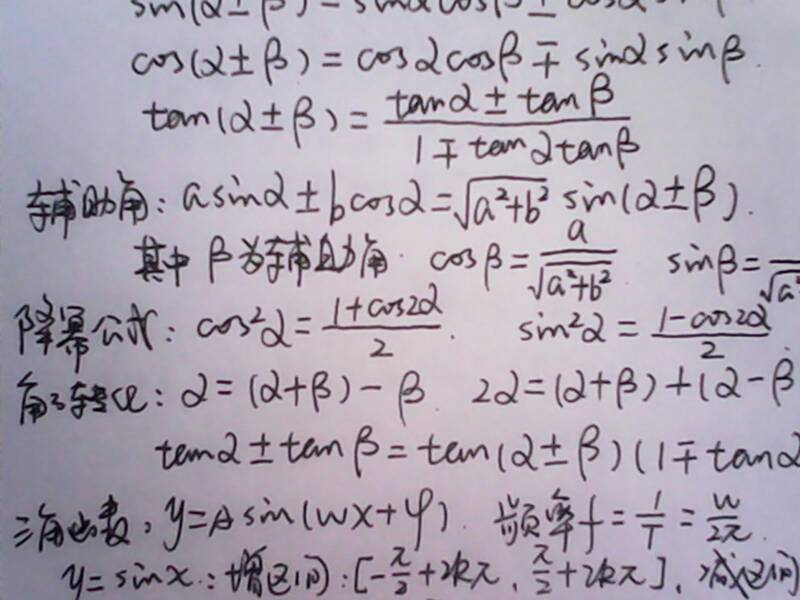 sin(α±β)=sinαcosβ±cosα
cos(α±β)=cosαcosβ∓sinαsinβ.
tan(α±β)=(tanα±tanβ)/(1∓tanαtanβ)
辅助角:asinα±bcosα=√(a²+b²) sin(α±β).
其中β为辅助角. cosβ=a/√(a²+b²) sinβ=/√(a²
降幂公式:cos²α=(1+cos2α)/2. sin²α=(1-cos2α)/2
角的转化:α=(α+β)-β 2α=(α+β)+(α-β
tanα±tanβ=tan(α±β)(1∓tanα
三角函数:y=Asin(wx+φ). 频率f=1/T=w/2π
y=sinx:增区间:[-π/2+2kπ,π/2+2kπ],减区间